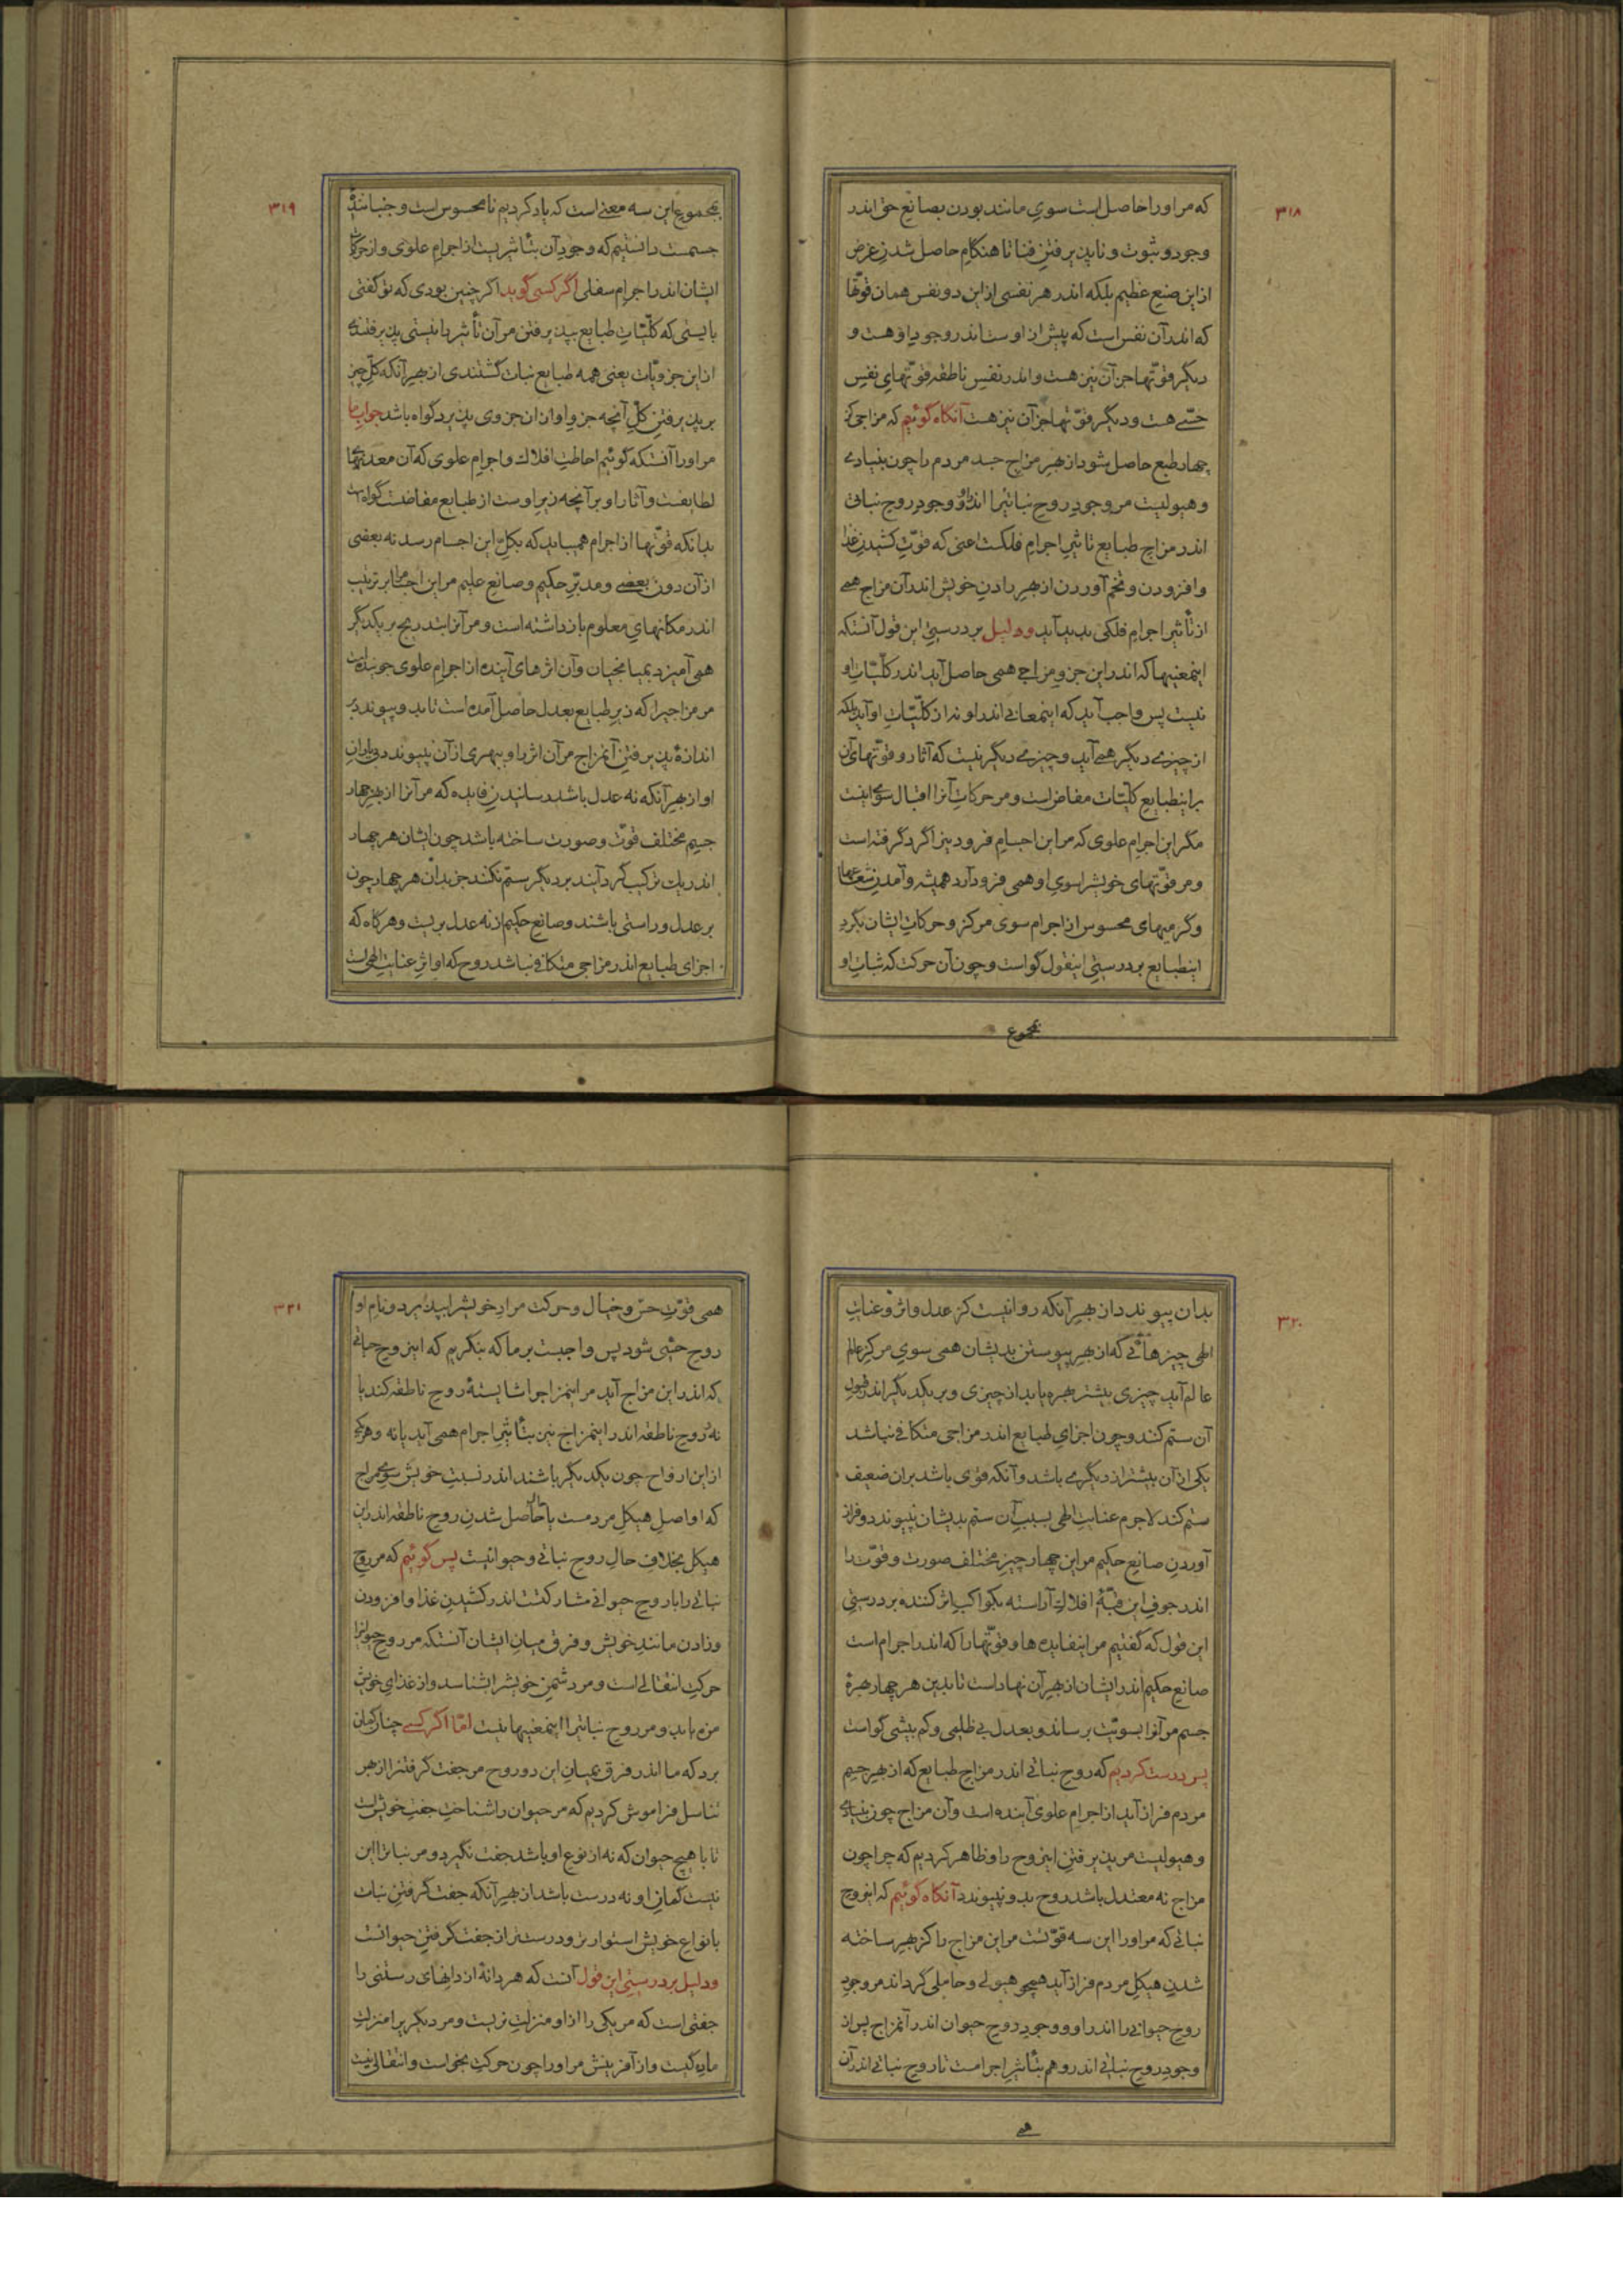 ٣١٨
که مر او را حاصل است سوی مانند بودن بصانع حق اندر
وجود و ثبوت و ناپذیرفتن فنا تا هنگام حاصل شدن غرض
ازین صنع عظیم بلکه اندر هر نفسی ازین دو نفس همان قوّتها
که اندر آن نفس است که پیش از اوست اندر وجود با او هست و
دیگر قوّتها جز آن نیز هست و اندر نفس ناطقه قوّتهای نفس
حسّی هست و دیگر قوّتها جز آن نیز هست آنگاه گوئیم که مزاجی کز
چهار طبع حاصل شود از بهر مزاج جسد مردم را چون بنیادی
و هیولیست مر وجود روح نباتی را اندرو و وجود روح نباتی
اندر مزاج طبایع تاثیر اجرام فلکست اعنی که قوّت کشیدن غذا
و افزودن و تخم آوردن از بهر زادن خویش اندر آن مزاج همی
از تأثیر اجرام فلکی پدید آید و دلیل بر درستی این قول آنستکه
اینمعنیها که اندر این جزو مزاجی همی حاصل آید اندر کلّیّات او
نیست پس واجب آید که اینمعانی اندر او نه از کلّیّات او آید بلکه
از چیزی دیگر همی آید و چیزی دیگر نیست که آثار و قوّتهای آن
بر اینطبایع کلّیّات مفاض است و مر حرکات آنرا اقبال سوی اینست
مگر این اجرام علوی که مر این اجسام فرودین را گرد گرفته است
و مر قوّتهای خویش را سوی او همی فرود آرد همیشه و آمدن شعاعها
و گرمیهای محسوس از اجرام سوی مرکز و حرکات ایشان بگرد
اینطبایع بر درستی اینقول گواست و چون آن حرکت که ثبات او
بمجموع
٣١٩
بمجموع این سه معنی است که یاد کردیم نامحسوس است و جنبانندهٔ
جسمست دانستیم که وجود آن بتأثیریست از اجرام علوی و از حرکات
ایشان اندر اجرام سفلی اگر کسی گوید اگر چنین بودی که تو گفتی
بایستی که کلّیّات طبایع بپذیرفتن مر آن تأثیر را بایستی پذیرفتندی
از این جزویّات یعنی همه طبایع نبات گشتندی از بهر آنکه کلّ چیز
بر پذیرفتن کلّ آنچه جزو او از ان جزوی پذیرد گواه باشد جواب ما
مر او را آنستکه گوئیم احاطت افلاک و اجرام علوی که آن معدنهای
لطایفست و آثار او بر آنچه زیر اوست از طبایع مفاضست گواه است
بدانکه قوّتها از اجرام همیباید که بکلّ این اجسام رسد نه بعضی
از آن دون بعضی و مدبّر حکیم و صانع علیم مر این اجسام را بر ترتیب
اندر مکانهای معلوم باز داشته است و مر آنرا بتدریج بر یکدیگر
همی آمیزد بمیانجیان و آن اثرهای آینده از اجرام علوی جوینده است
مر مزاجیرا که زیر طبایع بعدل حاصل آمده است تا بدو پیوندد بر
اندازهٔ پذیرفتن آنمزاج مر آن اثر را و بهری از آن نپیوندد بی یاران
او از بهر آنکه نه عدل باشد رسانیدن فایده که مر آنرا از بهر چهار
جسم مختلف قوّت و صورت ساخته باشد چون ایشان هر چهار
اندر یک ترکیب گرد آیند بر دیگر ستم نکند جز بدان هر چهار چون
بر عدل و راستی باشند و صانع حکیم از نه عدل بریست و هرگاه که
اجزای طبایع اندر مزاجی متکافی نباشد روح که او اثر عنایت الهی است
٣٢٠
بدان پیوندد از بهر آنکه روا نیست کز عدل و اثر و عنایت
الهی چیزهائی که از بهر پیوستن بدیشان همی سوی مرکز عالم
عالم آید چیزی بیشتر بهره یابد از چیزی و بر یکدیگر اندر قبول
آن ستم کند و چون اجزای طبایع اندر مزاجی متکافی نباشد
یکی از آن بیشتر از دیگری باشد و آنکه قوی باشد بر ان ضعیف
ستم کند لاجرم عنایت الهی بسبب آن ستم بدیشان نپیوندد و فراز
آوردن صانع حکیم مر این چهار چیز مختلف صورت و قوّت را
اندر جوف این قبّهٔ افلاک آراسته بکواکب اثر کننده بر درستی
این قول که گفتیم مر اینفایده‌ها و قوّتها را که اندر اجرام است
صانع حکیم اندر ایشان از بهر آن نهاد است تا بدین هر چهار بهرهٔ
جسم مر آنرا بسویّت برساند و بعدل بی ظلمی و کم بیشی گواست
پس درست کردیم که روح نباتی اندر مزاج طبایع که از بهر جسم
مردم فراز آید از اجرام علوی آینده است و آن مزاج چون بنیادی
و هیولیست مر پذیرفتن اینروح را و ظاهر کردیم که چرا چون
مزاج نه معتدل باشد روح بدو نپیوندد آنگاه گوئیم که اینروح
نباتی که مر او را این سه قوّتست مر این مزاج را کز بهر ساخته
شدن هیکل مردم فراز آید همچو هیولی و حاملی گرداند مر وجود
روح حیوانی را اندر او و وجود روح حیوان اندر آنمزاج پس از
وجود روح نباتی اندرو هم بتأثیر اجرامست تا روح نباتی اندر آن
همی
٣٢١
همی قوّت حسّ و خیال و حرکت مراد خویش را بپذیرد و نام او
روح حسّی شود پس واجبست بر ما که بنگریم که اینروح حیاتی
که اندر این مزاج آید مر اینمزاج را شایستهٔ روح ناطقه کند یا
نه و روح ناطقه اندر اینمزاج نیز بتأثیر اجرام همی آید یا نه و هر یکی
از این ارواح چون یکدیگر باشند اندر نسبت خویش سوی مزاج
که او اصل هیکل مردمست یا حال حاصل شدن روح ناطقه اندر این
هیکل بخلاف حال روح نباتی و حیوانیست پس گوئیم که مر روح
نباتی را با روح حیوانی مشارکتست اندر کشیدن غذا و افزودن
و زادن مانند خویش و فرق میان ایشان آنستکه مر روح حیوانرا
حرکت انتقالی است و مر دشمن خویش را شناسد و از غذای خویش
مزه یابد و مر روح نباتی را اینمعنیها نیست امّا اگر کسی چنان گمان
برد که ما اندر فرق بمیان این دو روح مر جفت گرفتن را از بهر
تناسل فراموش کردیم که مر حیوان را شناخت جفت خویش است
تا با هیچ حیوان که نه از نوع او باشد جفت نگیرد و مر نباتا این
نیست گمان او نه درست باشد از بهر آنکه جفت گرفتن نبات
با نواع خویش استوارتر و درستتر از جفت گرفتن حیوانست
و دلیل بر درستی این قول آنست که هر دانهٔ از دانهای رستنی را
جفتی است که مر یکی را از او منزلت نریست و مر دیگر یرا منزلت
مادگیست و از آفرینش مر او را چون حرکت بخواست و انتقالی نیست